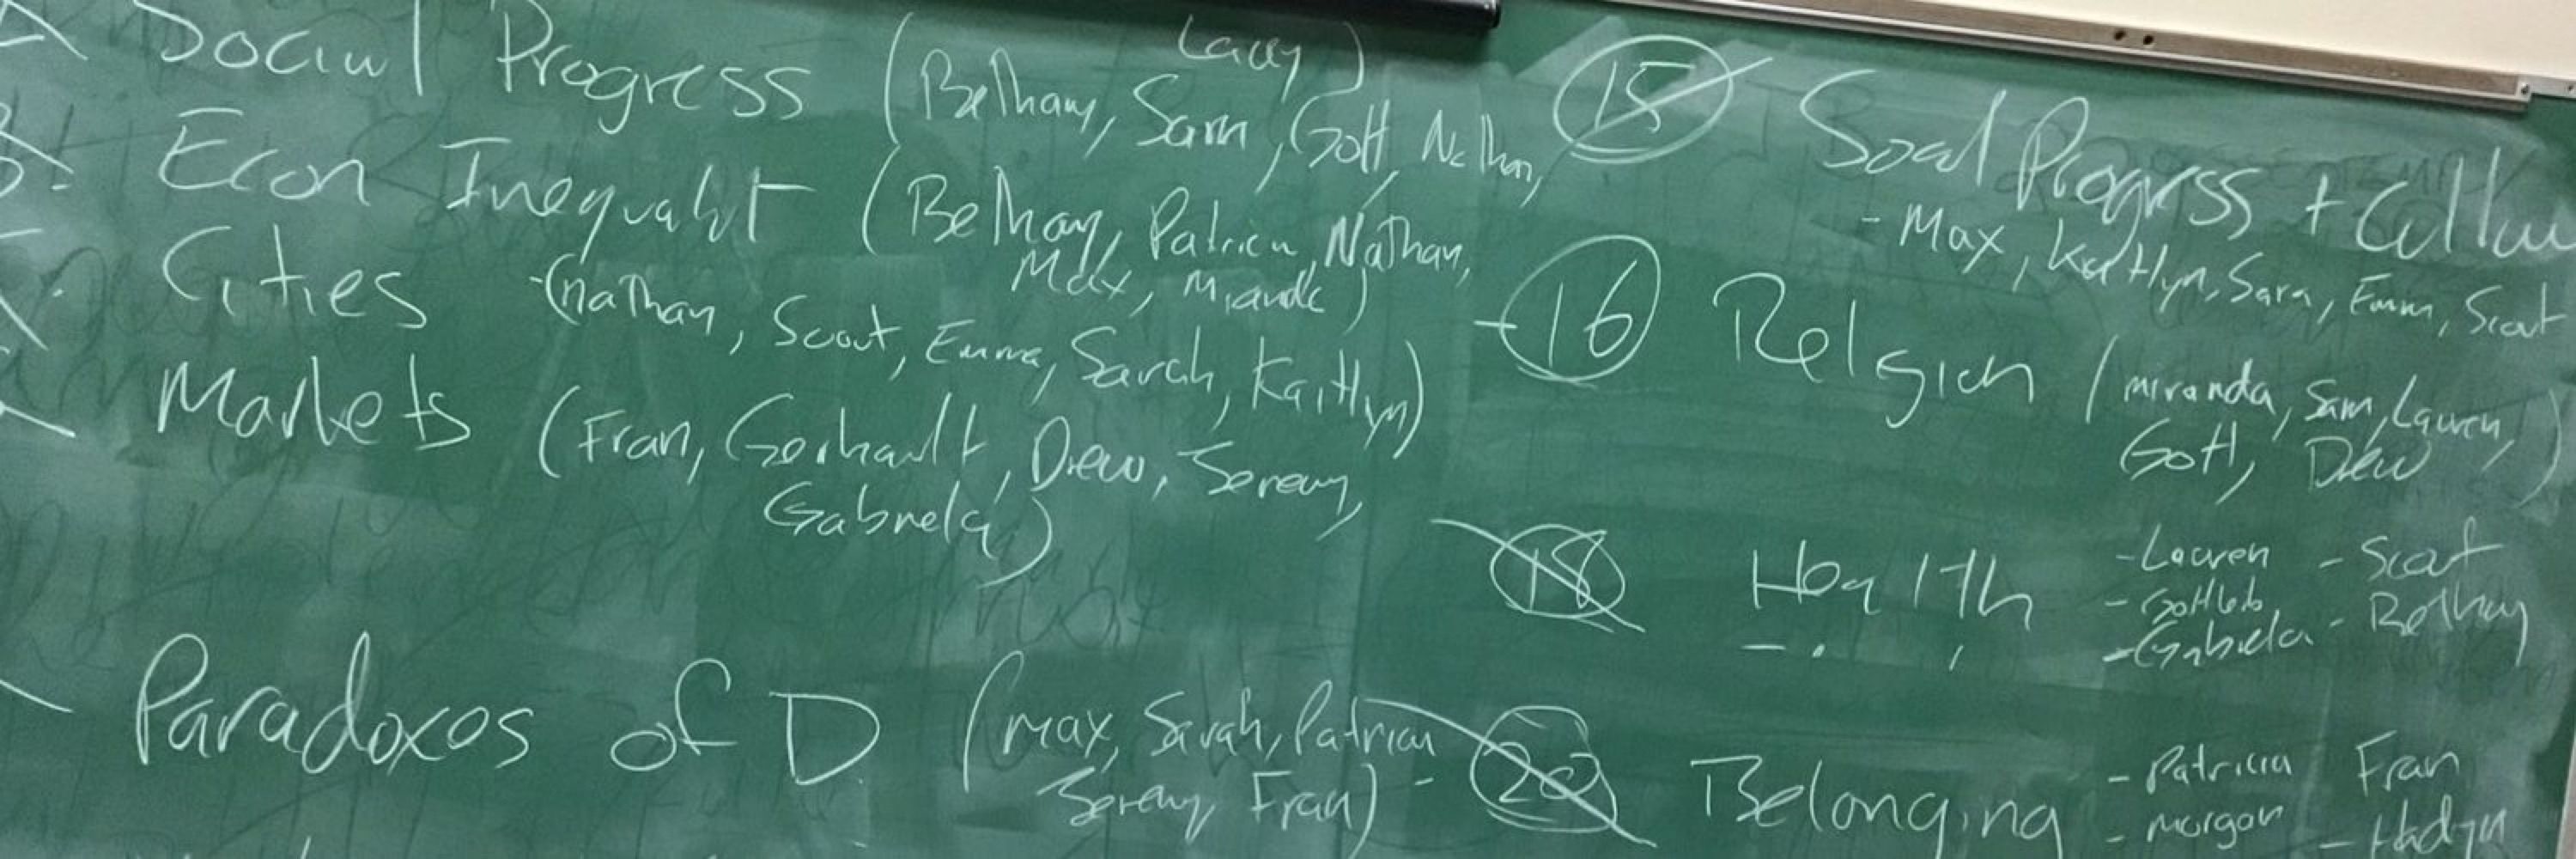 A Social Progress (Bethany, Sam, Gott, Nathan, Lacey)
B. Econ Inequalit (Bethany, Patricia, Nathan,
Max, Miranda)
Cities -(nathan, Scout, Emma, Sarah, Kaitlyn)
Markets (Fran, Gerhardt, Drew, Jeremy,
Gabriela)
Paradoxes of D. (Max, Sarah, Patricia
Jeremy, Fran)
15 Social Progress + Cultu
- Max, Kaitlyn, Sara, Emm, Scout
16 Religion (miranda, Sam, Lauren,
Gott, Drew)
18 Health
- Lauren - Scout
- Gottlieb, - Bethany
- Gabriela
20 Belonging
- Patricia Fran
- Morgan - Hadyn